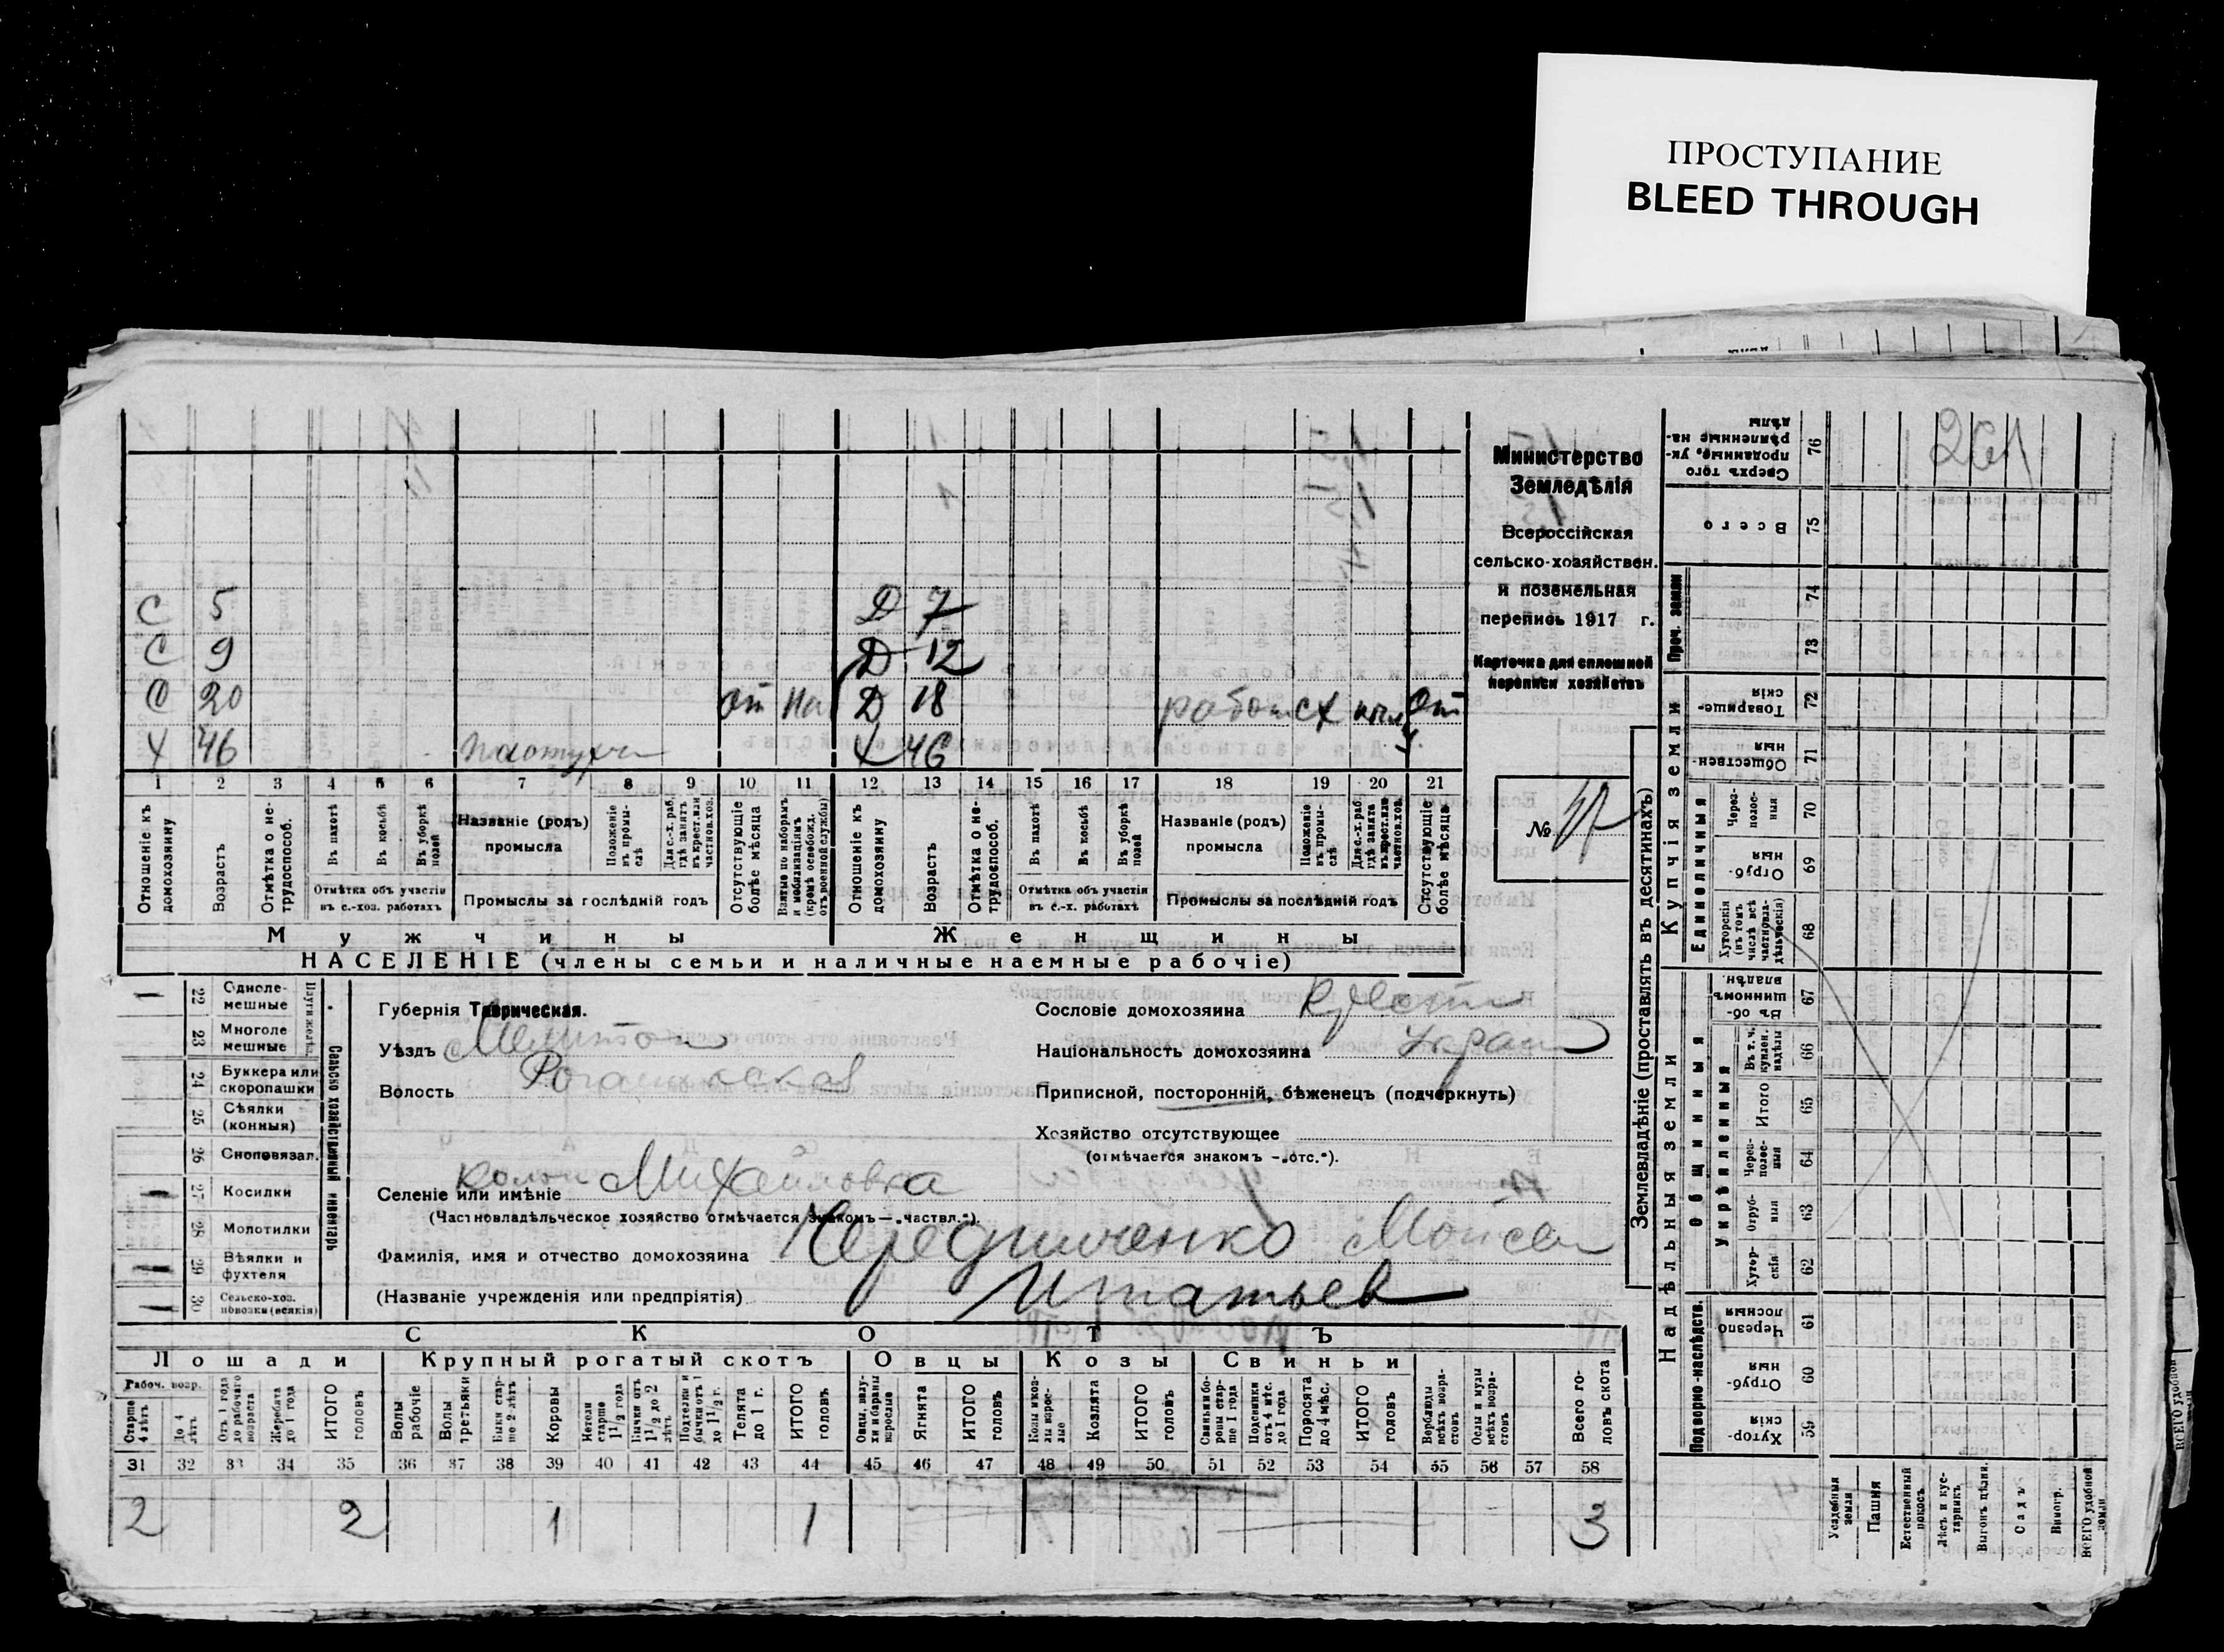 ПРОСТУПАНИЕ
BLEED THROUGH
261
Министерство
Земледѣлія
Всероссійская
сельско-хозяйствен.
и поземельная
перепись 1917 г.
Карточка для сплошной
переписи хозяйствъ
№
С 5 Д 7
С 9 Д 12
С 20 От На Д 18 работ сх От
Х 46 Х 46
1 2 3 4 5 6 7 8 9 10 11 12 13 14 15 16 17 18 19 20 21
Отношеніе къ домохозяину
Возрастъ
Отмѣтка о не-трудоспособ.
Въ пахотѣ
Въ косьбѣ
Въ уборкѣ полей
Отмѣтка объ участіи въ с.-хоз. работахъ
Названіе (родъ) промысла
Положеніе въ промы-слѣ
Для с.-х. раб. гдѣ занятъ въ крест. или частнов. хоз.
Промыслы за послѣдній годъ
Отсутствующіе болѣе мѣсяца
Взятые по наборамъ и мобилизаціямъ (кромѣ освобожд. отъ военной службы)
Отношеніе къ домохозяину
Возрастъ
Отмѣтка о не-трудоспособ.
Въ пахотѣ
Въ косьбѣ
Въ уборкѣ полей
Отмѣтка объ участіи въ с.-х. работахъ
Названіе (родъ) промысла
Положеніе въ промы-слѣ
Для с.-х. раб. гдѣ занята въ крест. или частнов. хоз.
Промыслы за послѣдній годъ
Отсутствующіе болѣе мѣсяца
Мужчины Женщины
НАСЕЛЕНІЕ (члены семьи и наличные наемные рабочіе)
22 Однолемешные
23 Многолемешные
24 Буккера или скоропашки
25 Сѣялки (конныя)
26 Сноповязал.
27 Косилки
28 Молотилки
29 Вѣялки и фухтеля
30 Сельско-хоз. повозки (всякія)
Плуги желѣз.
Сельско хозяйственный инвентарь
Губернія Таврическая.
Уѣздъ Мелитоп
Волость
Селеніе или имѣніе Михайловка
(Частновладѣльческое хозяйство отмѣчается знакомъ — „частвл.“).
Фамилія, имя и отчество домохозяина Чередниченко Моисей
(Названіе учрежденія или предпріятія) Игнатьев
Сословіе домохозяина Крест
Національность домохозяина Украи
Приписной, посторонній, бѣженецъ (подчеркнуть)
Хозяйство отсутствующее
(отмѣчается знакомъ - „отс.“).
СКОТЪ
Лошади Крупный рогатый скотъ Овцы Козы Свиньи
Рабоч. возр.
Старше 4 лѣтъ
До 4 лѣтъ
Отъ 1 года до рабочаго возраста
Жеребята до 1 года
ИТОГО головъ
Волы рабочіе
Волы третьяки
Быки старше 2 лѣтъ
Коровы
Нетели старше 1 1/2 года
Бычки отъ 1 1/2 до 2 лѣтъ
Подтелки и бычки отъ 1 до 1 1/2 г.
Телята до 1 г.
ИТОГО головъ
Овцы, валухи и бараны взрослые
Ягнята
ИТОГО головъ
Козы и козлы взрослые
Козлята
ИТОГО головъ
Свиньи и боровы старше 1 года
Подсвинки отъ 4 мѣс. до 1 года
Поросята до 4 мѣс.
ИТОГО головъ
Верблюды всѣхъ возрастовъ
Ослы и мулы всѣхъ возрастовъ
Всего головъ скота
31 32 33 34 35 36 37 38 39 40 41 42 43 44 45 46 47 48 49 50 51 52 53 54 55 56 57 58
2 2 1 1 3
Землевладѣніе (проставлять въ десятинахъ)
Надѣльныя земли Купчія земли
Подворно-наслѣдств.
Общинныя
Укрѣпленныя
Единоличныя
Проч. земли
76 Сверхъ того проданные, укрѣпленные надѣлы
75 Всего
74
73
72 Товарищескія
71 Общественныя
70 Черезполосныя
69 Отрубныя
68 Хуторскія (въ томъ числѣ всѣ частновладѣльческія)
67 Въ общинномъ владѣн.
66 Въ т. ч. куплен. надѣлы
65 Итого
64 Черезполосныя
63 Отрубныя
62 Хуторскія
61 Черезполосныя
60 Отрубныя
59 Хуторскія
Усадебныя земли
Пашня
Естественный покосъ
Лѣсъ и кустарникъ
Выгонъ цѣлин.
Садъ
Виногр.
ВСЕГО удобной земли
ВСЕГО удобной